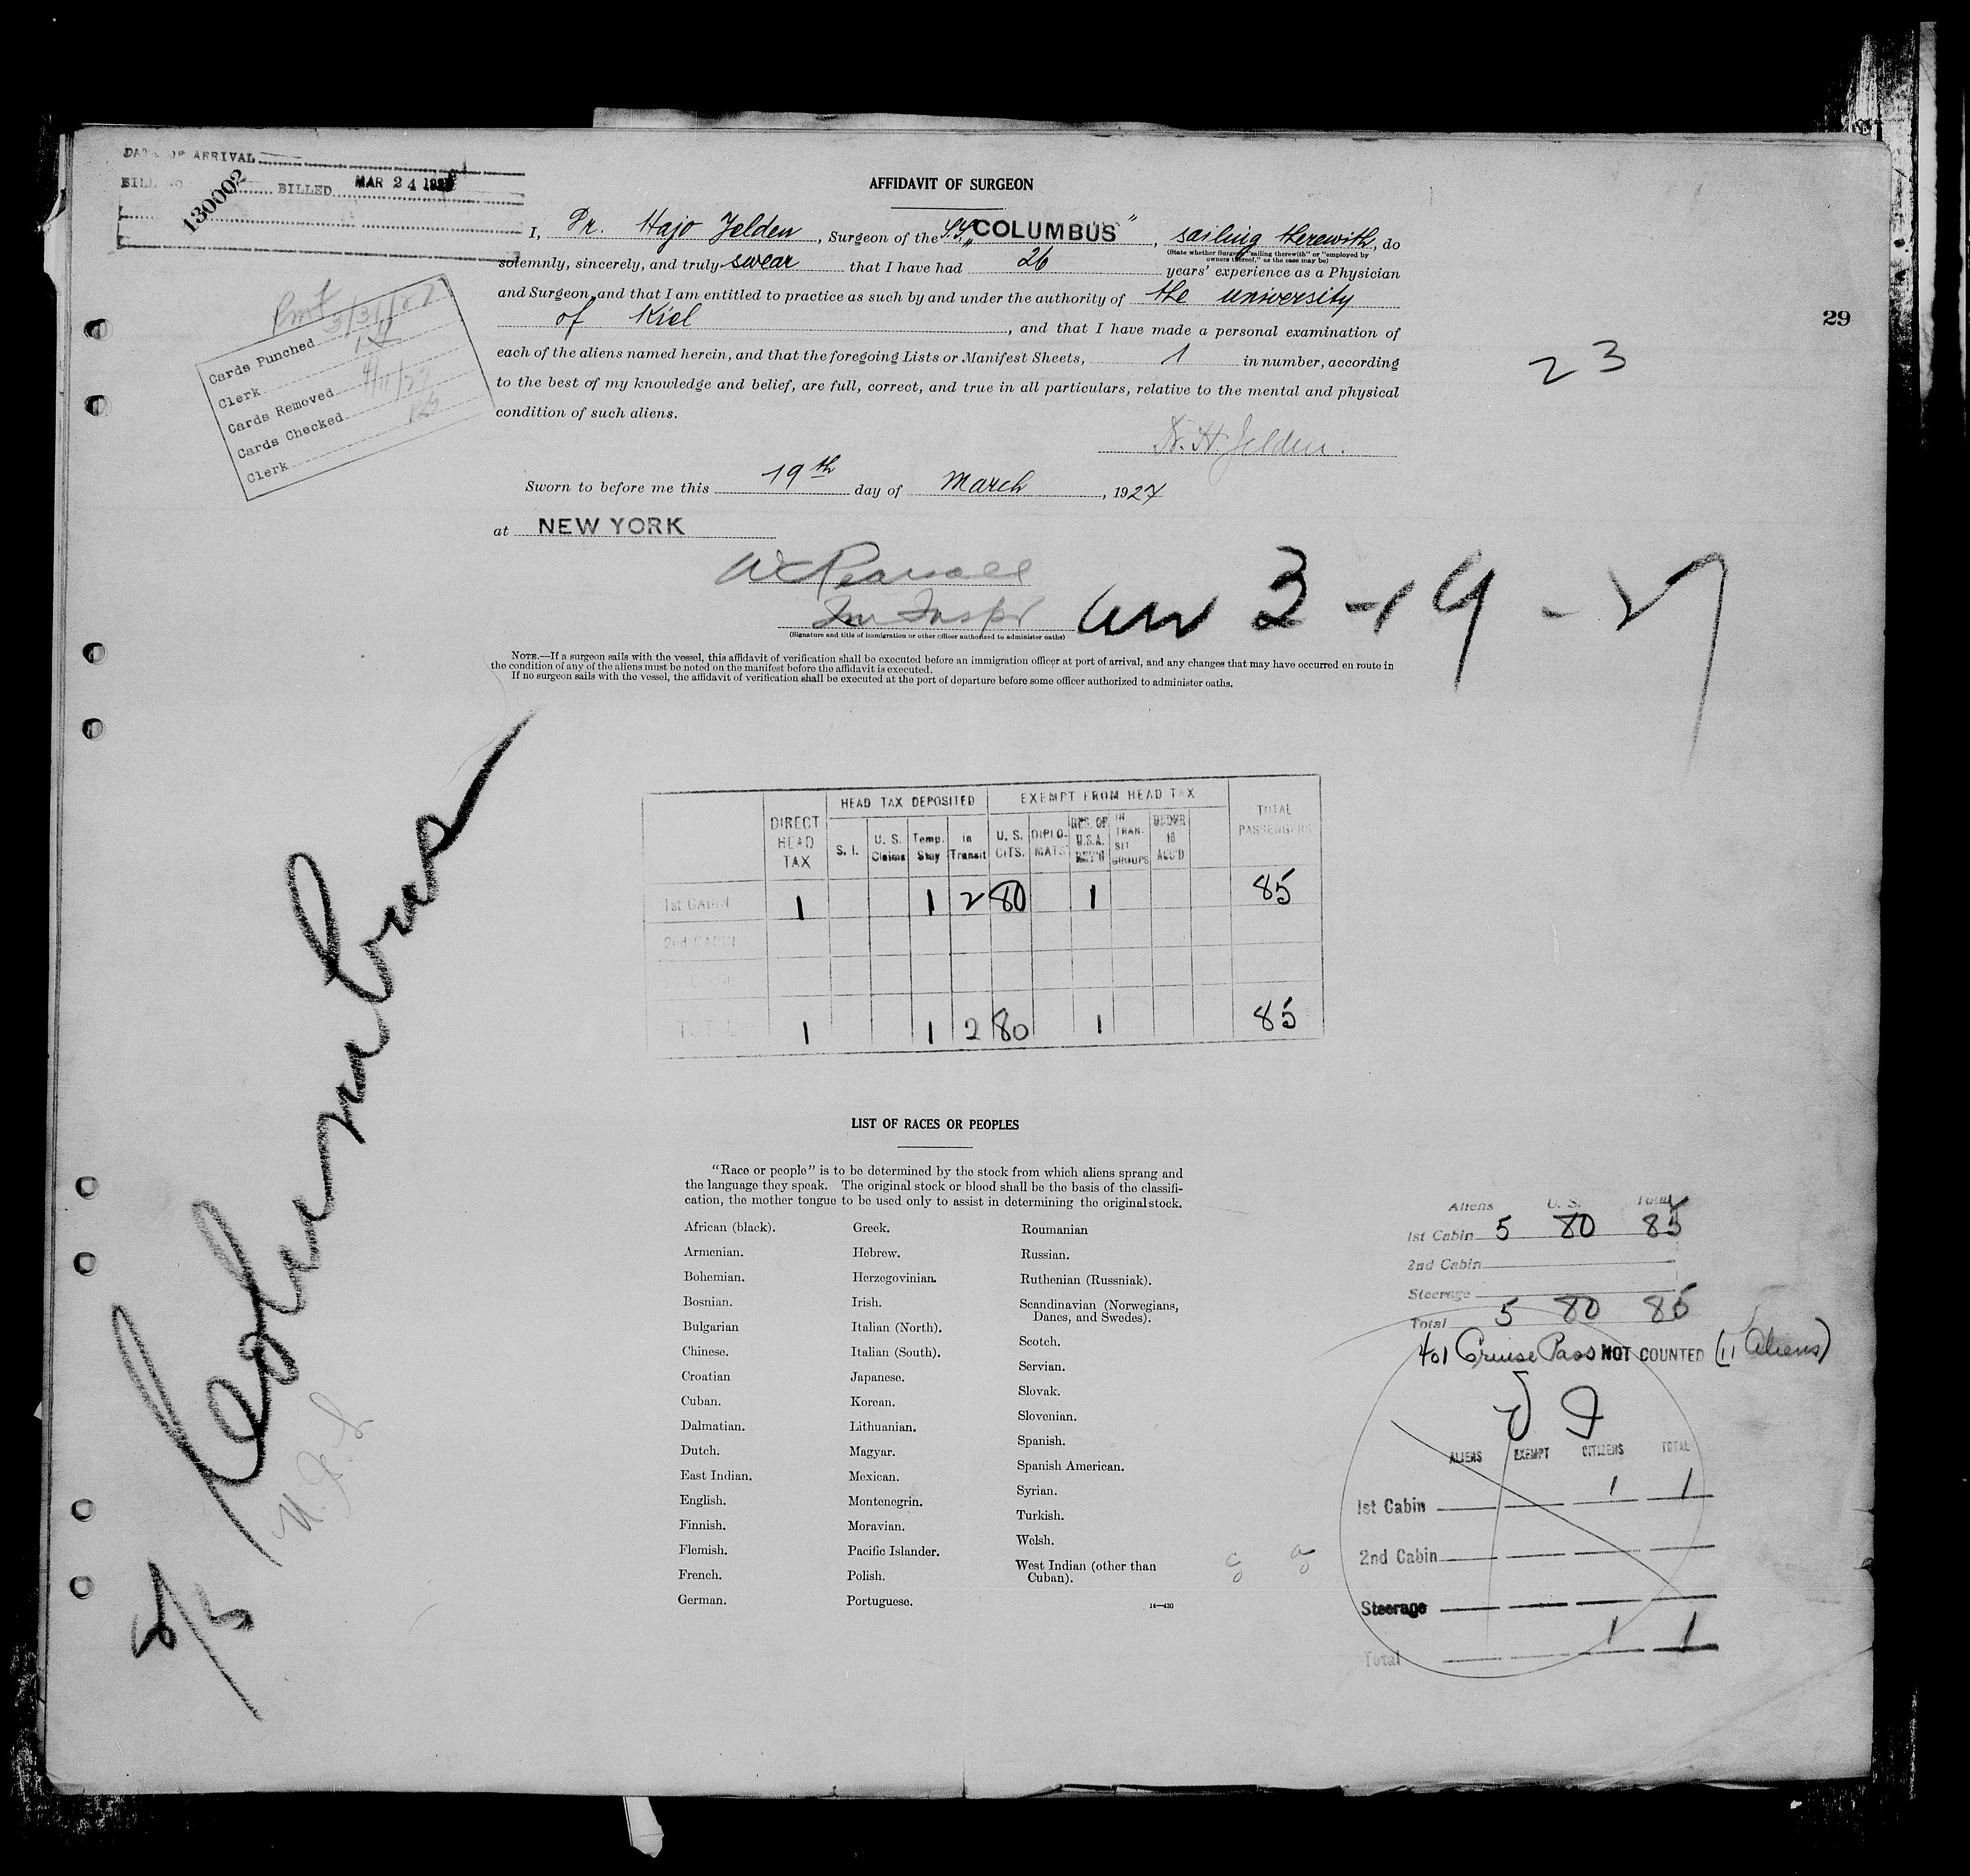 DATE OF ARRIVAL
BILL NO 130002 BILLED MAR 24 1927
AFFIDAVIT OF SURGEON
I, Dr. Hajo Jelden, Surgeon of the S.S. „COLUMBUS", sailing therewith, do
(State whether Surgeon "sailing therewith" or "employed by
owners thereof," as the case may be)
solemnly, sincerely, and truly swear that I have had 26 years' experience as a Physician
and Surgeon, and that I am entitled to practice as such by and under the authority of the university
of Kiel, and that I have made a personal examination of
each of the aliens named herein, and that the foregoing Lists or Manifest Sheets, 1 in number, according
to the best of my knowledge and belief, are full, correct, and true in all particulars, relative to the mental and physical
condition of such aliens.
Dr. H Jelden.
Sworn to before me this 19th day of March, 1927
at NEW YORK
29
23
3/31/27
Cards Punched
Clerk
Cards Removed 4/11/27
Cards Checked
Clerk
W C Pearsall
Im Inspr
(Signature and title of immigration or other officer authorized to administer oaths)
arr 3-19-27
NOTE.—If a surgeon sails with the vessel, this affidavit of verification shall be executed before an immigration officer at port of arrival, and any changes that may have occurred en route in
the condition of any of the aliens must be noted on the manifest before the affidavit is executed.
If no surgeon sails with the vessel, the affidavit of verification shall be executed at the port of departure before some officer authorized to administer oaths.
S/S Columbus
DIRECT HEAD TAX
HEAD TAX DEPOSITED
S. I. U. S. Claims Temp. Stay In Transit
EXEMPT FROM HEAD TAX
U. S. CITS. DIPLOMATS RES. OF U.S.A. RET'G IN TRANSIT GROUPS UNDER 16 ACC'D
TOTAL PASSENGERS
1st CABIN 1 1 2 80 1 85
2nd CABIN
TOTAL 1 1 2 80 1 85
LIST OF RACES OR PEOPLES
"Race or people" is to be determined by the stock from which aliens sprang and
the language they speak. The original stock or blood shall be the basis of the classifi-
cation, the mother tongue to be used only to assist in determining the original stock.
African (black).
Armenian.
Bohemian.
Bosnian.
Bulgarian
Chinese.
Croatian
Cuban.
Dalmatian.
Dutch.
East Indian.
English.
Finnish.
Flemish.
French.
German.
Greek.
Hebrew.
Herzegovinian.
Irish.
Italian (North).
Italian (South).
Japanese.
Korean.
Lithuanian.
Magyar.
Mexican.
Montenegrin.
Moravian.
Pacific Islander.
Polish.
Portuguese.
Roumanian
Russian.
Ruthenian (Russniak).
Scandinavian (Norwegians,
Danes, and Swedes).
Scotch.
Servian.
Slovak.
Slovenian.
Spanish.
Spanish American.
Syrian.
Turkish.
Welsh.
West Indian (other than
Cuban).
14—430
Aliens U. S. Total
1st Cabin 5 80 85
2nd Cabin
Steerage
Total 5 80 85
401 Cruise Pass NOT COUNTED (11 Aliens)
ALIENS EXEMPT CITIZENS TOTAL
1st Cabin 1 1
2nd Cabin
Steerage
Total 1 1